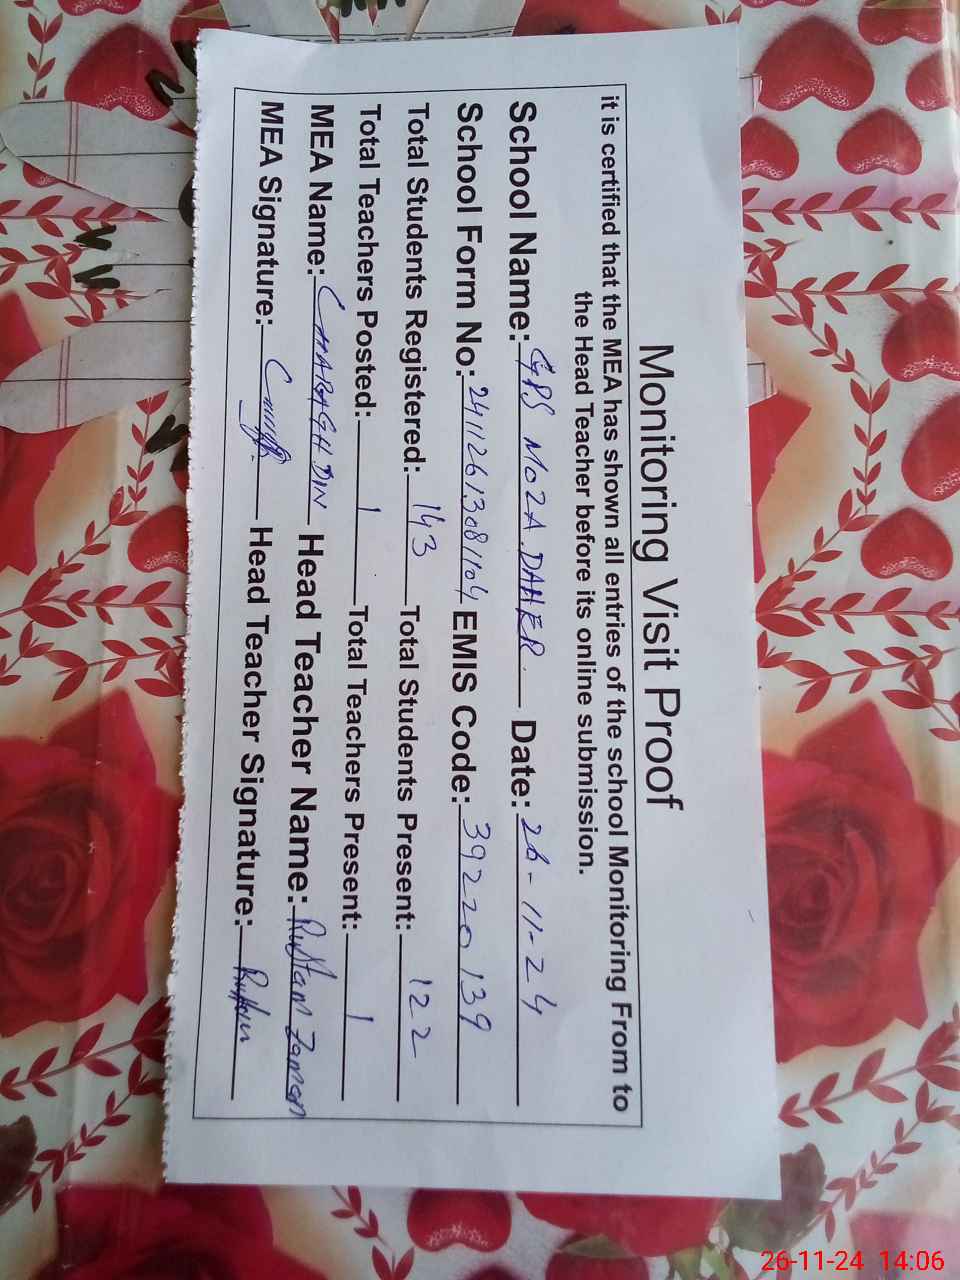 Monitoring Visit Proof
it is certified that the MEA has shown all entries of the school Monitoring From to
the Head Teacher before its online submission.
School Name: GPS MOZA DAHER. Date: 26-11-24
School Form No: 24112613081104 EMIS Code: 39220139
Total Students Registered: 143 Total Students Present: 122
Total Teachers Posted: 1 Total Teachers Present: 1
MEA Name: CHARAGH DIN Head Teacher Name: Rustam Zaman
MEA Signature: Head Teacher Signature:
26-11-24 14:06